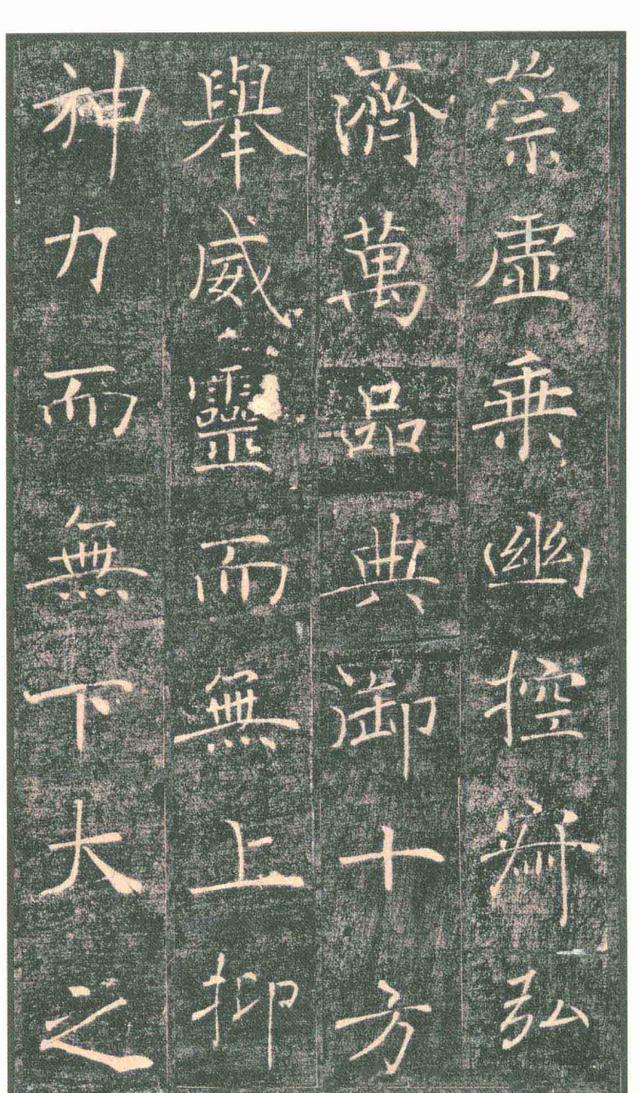 崇虛乘幽控寂弘
濟萬品典御十方
舉威靈而無上抑
神力而無下大之